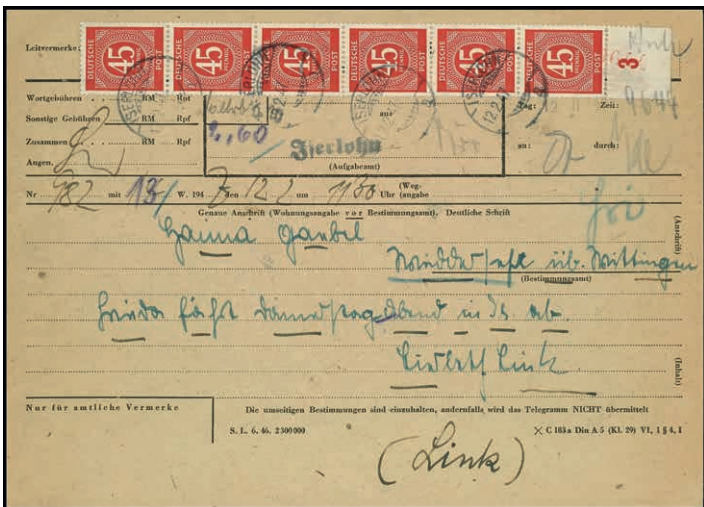 Leitvermerke:
DEUTSCHE POST 45 PFENNIG DEUTSCHE POST 45 PFENNIG DEUTSCHE POST 45 PFENNIG DEUTSCHE POST 45 PFENNIG DEUTSCHE POST 45 PFENNIG DEUTSCHE POST 45 PFENNIG 3
ISERLOHN 12.2.47
Wortgebühren RM Rpf
Sonstige Gebühren RM Rpf
Zusammen RM Rpf
Angen.
aus
Iserlohn
(Aufgabeamt)
Tag: Zeit:
9644
an: durch:
Nr 982 mit 13/ W. 194 7 den 12 2 um 1130 Uhr (Weg-angabe
Genaue Anschrift (Wohnungsangabe vor Bestimmungsamt). Deutliche Schrift
Hanna Gaubel
üb. Wittingen
(Bestimmungsamt)
(Anschrift)
Frieda fährt abend in ab.
Link
(Inhalt)
Nur für amtliche Vermerke
Die umseitigen Bestimmungen sind einzuhalten, andernfalls wird das Telegramm NICHT übermittelt
S. L. 6. 46. 2300000
C 183a Din A 5 (Kl. 29) VI, 1 § 4, I
(Link)